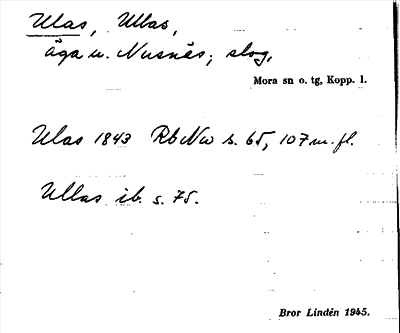 Ulas, Ullas,
äga u. Nusnäs; skog.
Mora sn o. tg, Kopp. l.
Ulas 1843 RbNw s. 65, 107 m. fl.
Ullas ib. s. 75.
Bror Lindén 1945.